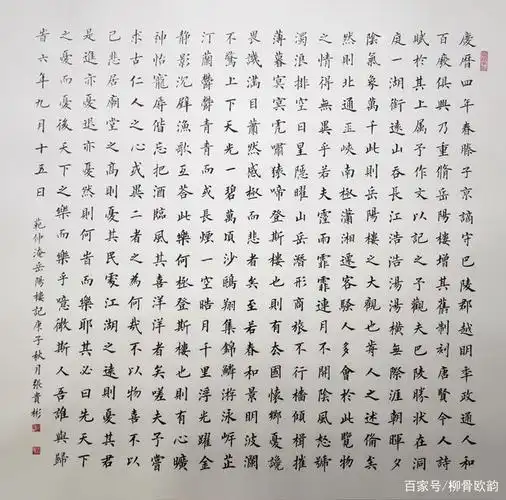 慶曆四年春滕子京謫守巴陵郡越明年政通人和
百廢俱興乃重脩岳陽樓增其舊制刻唐賢今人詩
賦於其上屬予作文以記之予觀夫巴陵勝狀在洞
庭一湖銜遠山吞長江浩浩湯湯橫無際涯朝暉夕
陰氣象萬千此則岳陽樓之大觀也歬人之述備矣
然則北通巫峽南極瀟湘遷客騷人多會於此覽物
之情得無異乎若夫霪雨霏霏連月不開陰風怒號
濁浪排空日星隱曜山岳潛形商旅不行檣傾楫摧
薄暮冥冥虎嘯猿啼登斯樓也則有去國懷鄉憂讒
畏譏滿目蕭然感極而悲者矣至若春和景明波瀾
不驚上下天光一碧萬頃沙鷗翔集錦鱗游泳岸芷
汀蘭鬱鬱青青而或長煙一空皓月千里浮光耀金
靜影沉璧漁歌互答此樂何極登斯樓也則有心曠
神怡寵辱偕忘把酒臨風其喜洋洋者矣嗟夫予嘗
求古仁人之心或異二者之為何哉不以物喜不以
己悲居廟堂之高則憂其民處江湖之遠則憂其君
是進亦憂退亦憂然則何旹而樂耶其必曰先天下
之憂而憂後天下之樂而樂乎噫微斯人吾誰與歸
旹六年九月十五日
范仲淹岳陽樓記庚子秋月張貴彬
百家号/柳骨欧韵